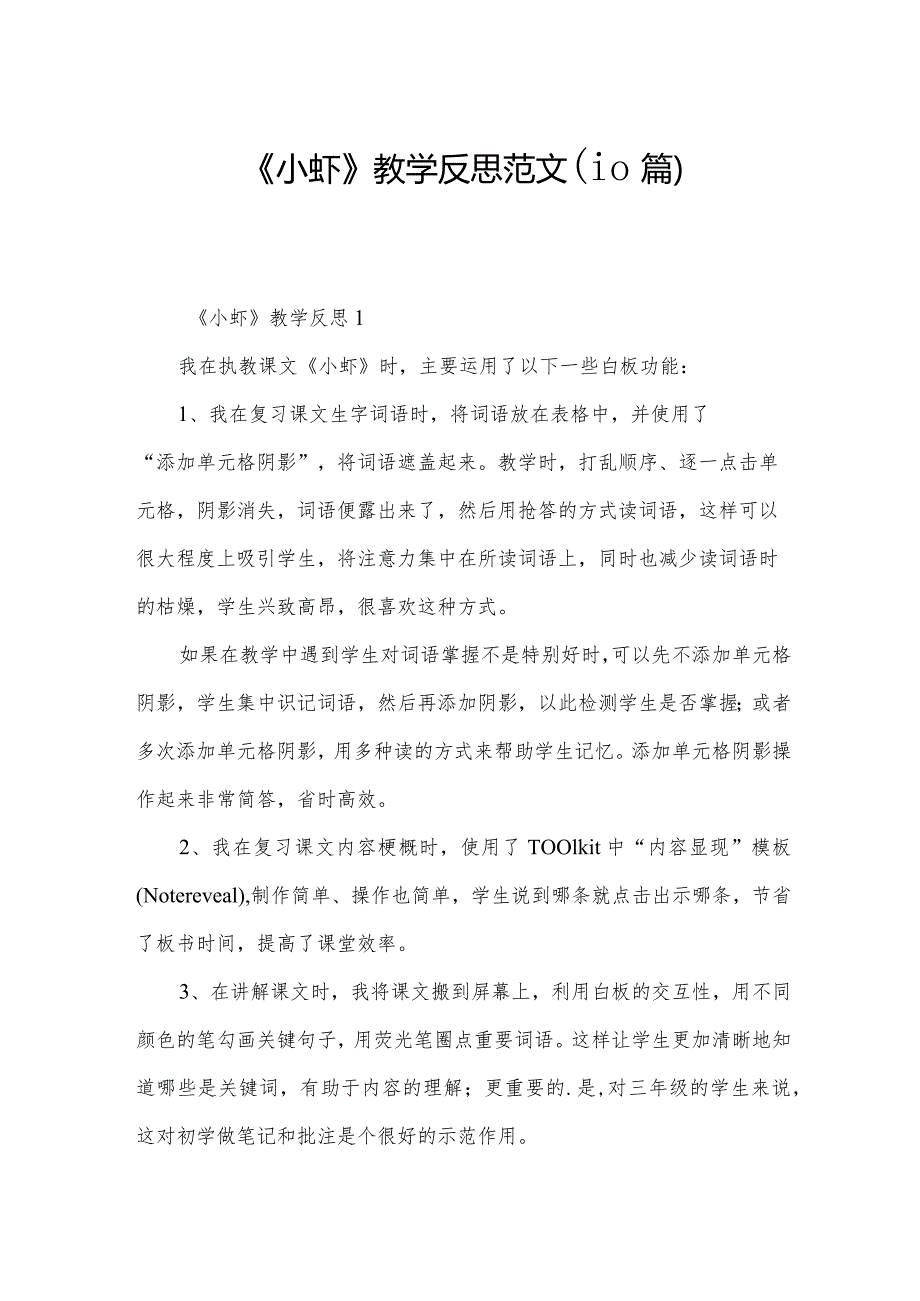 《小虾》教学反思范文(io 篇)
《小虾》教学反思 1
我在执教课文《小虾》时，主要运用了以下一些白板功能：
1、我在复习课文生字词语时，将词语放在表格中，并使用了
“添加单元格阴影”，将词语遮盖起来。教学时，打乱顺序、逐一点击单
元格，阴影消失，词语便露出来了，然后用抢答的方式读词语，这样可以
很大程度上吸引学生，将注意力集中在所读词语上，同时也减少读词语时
的枯燥，学生兴致高昂，很喜欢这种方式。
如果在教学中遇到学生对词语掌握不是特别好时,可以先不添加单元格
阴影，学生集中识记词语，然后再添加阴影，以此检测学生是否掌握；或者
多次添加单元格阴影，用多种读的方式来帮助学生记忆。添加单元格阴影操
作起来非常简答，省时高效。
2、我在复习课文内容梗概时，使用了 TOOlkit 中“内容显现”模板
(Notereveal),制作简单、操作也简单，学生说到哪条就点击出示哪条，节省
了板书时间，提高了课堂效率。
3、在讲解课文时，我将课文搬到屏幕上，利用白板的交互性，用不同
颜色的笔勾画关键句子，用荧光笔圈点重要词语。这样让学生更加清晰地知
道哪些是关键词，有助于内容的理解；更重要的.是,对三年级的学生来说，
这对初学做笔记和批注是个很好的示范作用。